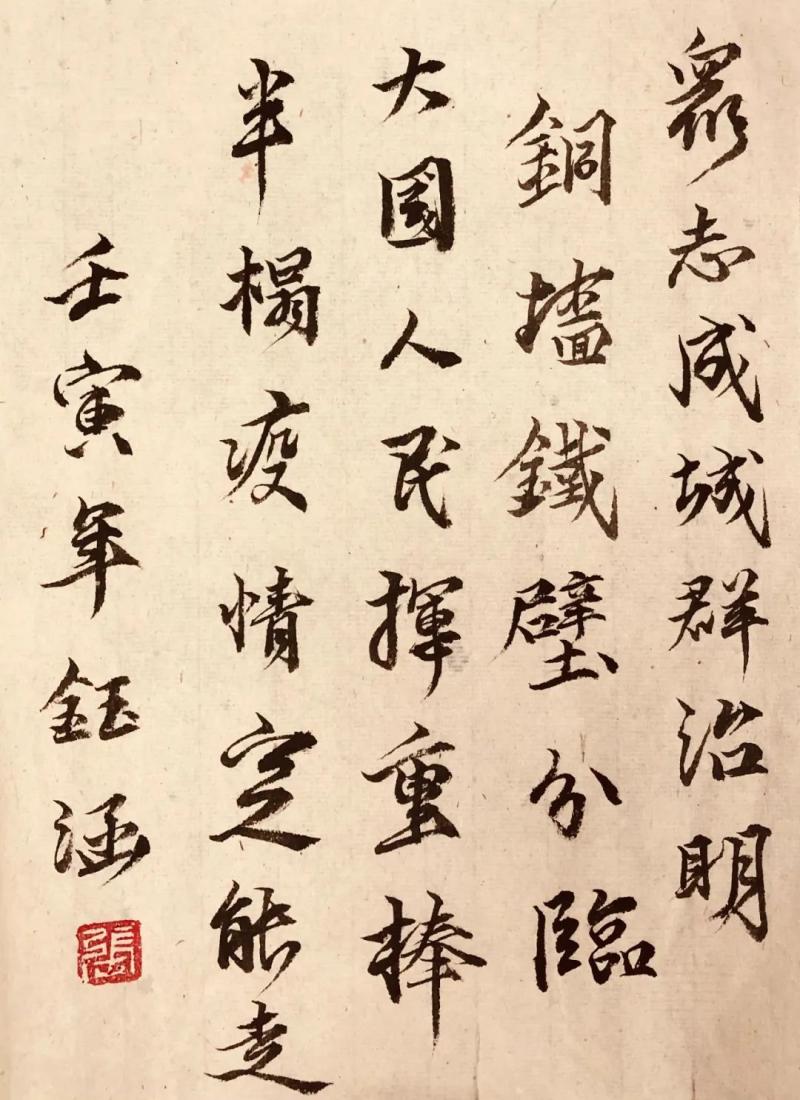 眾志成城群治明
銅墻鐵壁分臨
大國人民揮重棒
半榻疫情定能走
壬寅年鈺涵
張